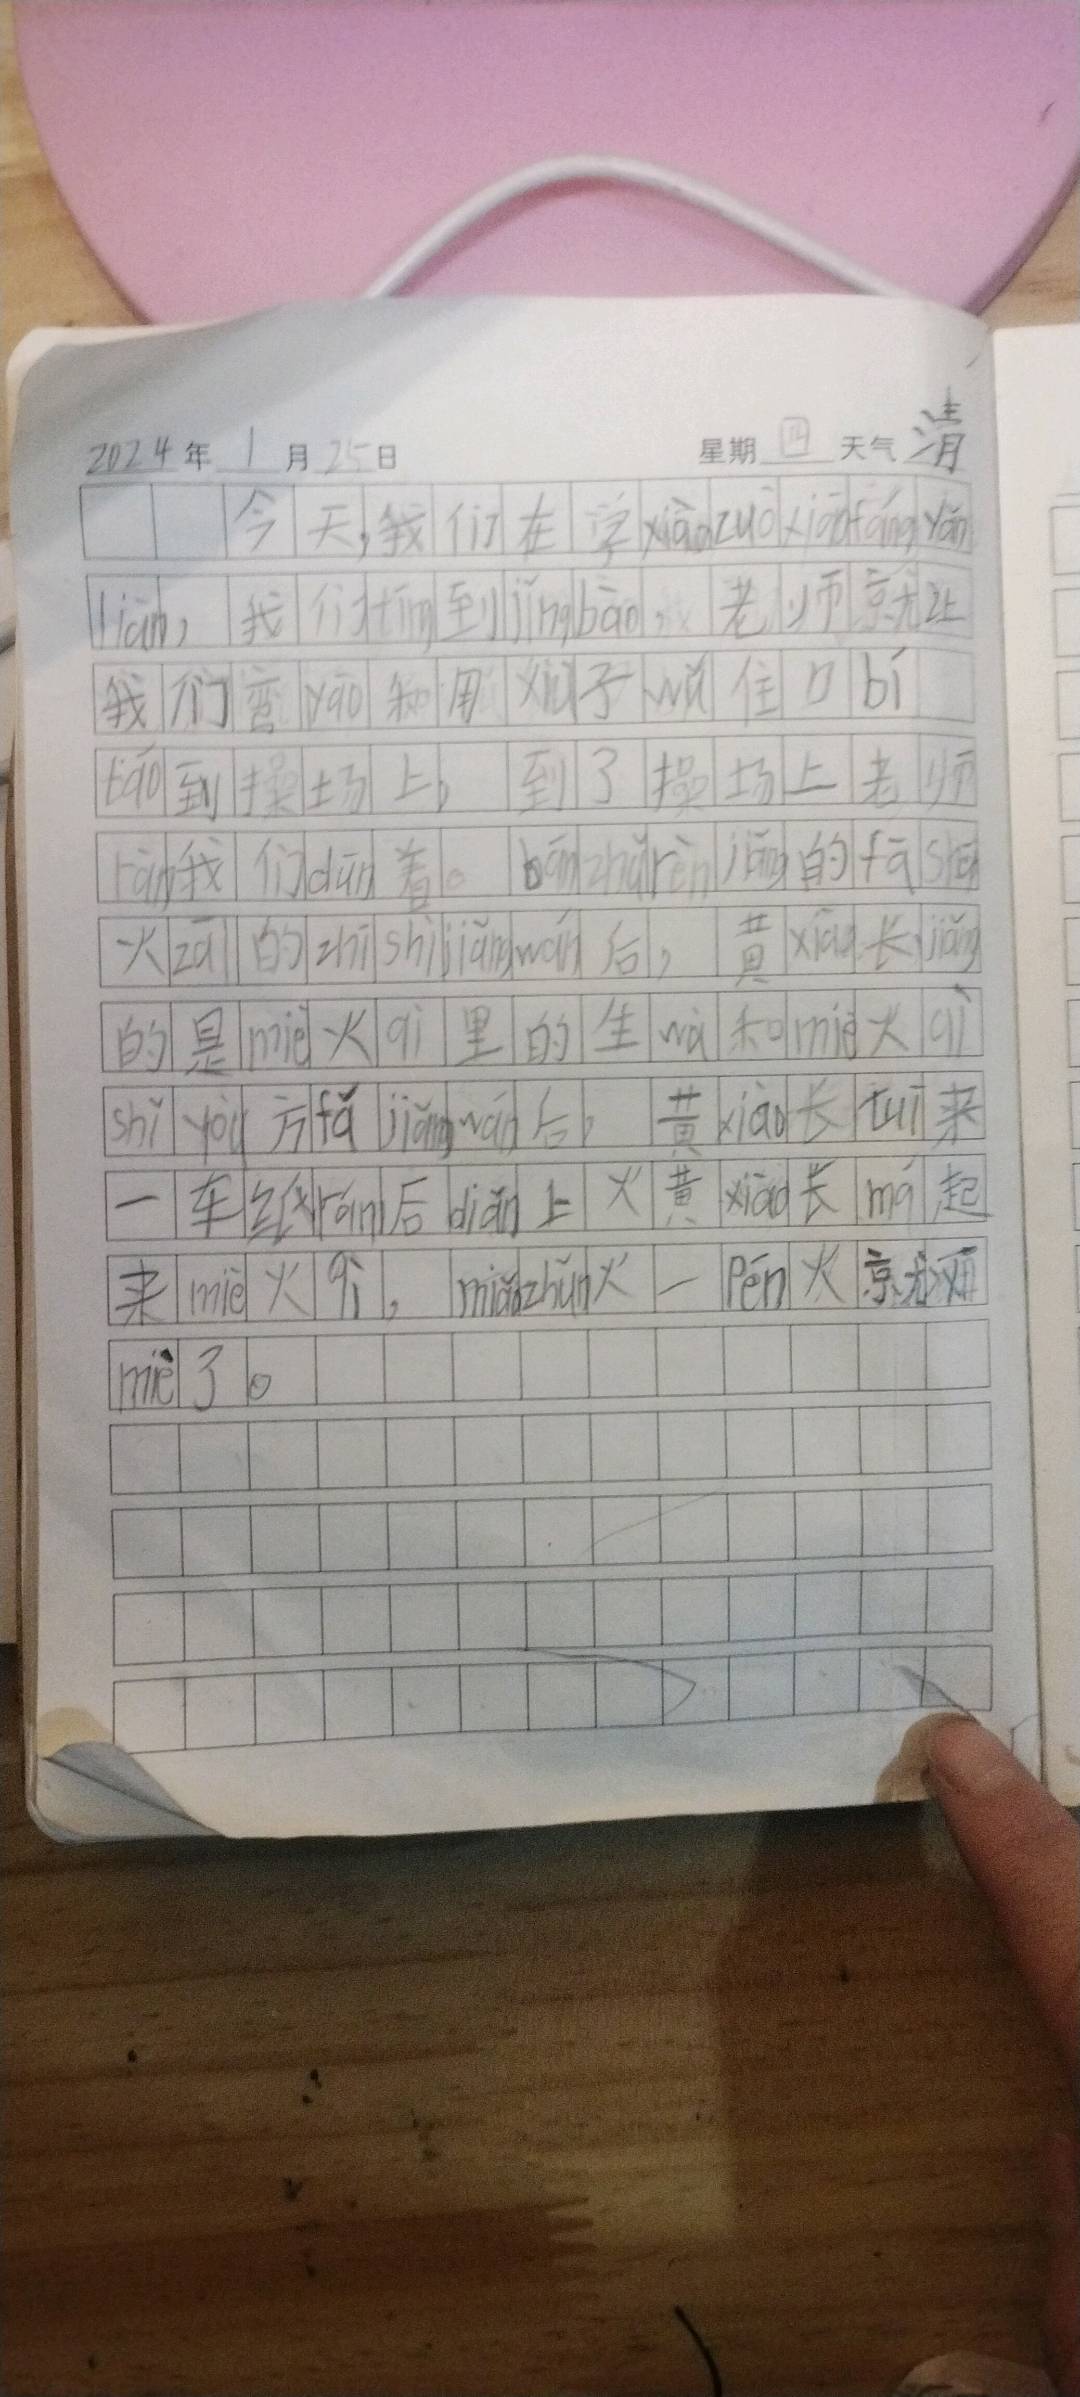 2024年1月25日 星期四 天气清
今天,我们在学xiào zuò xiāo fáng yǎn
liàn,我们tīng到jǐng bào,老师就让
我们弯yāo和用xiù子wǔ住口bí
táo到操场上,到了操场上老师
ràng我们dūn着。bān zhǔ rèn jiǎng的fā shēn
火zāi的zhī shi jiǎng wán后,黄xiào长jiǎng
的是miè火qì里的生wù和miè火qì
shǐ yòng方fǎ jiǎng wán后,黄xiào长tuī来
一车纸rán后diǎn上火黄xiào长ná起
来miè火qì,miáo zhǔn火一pēn火就
miè了。